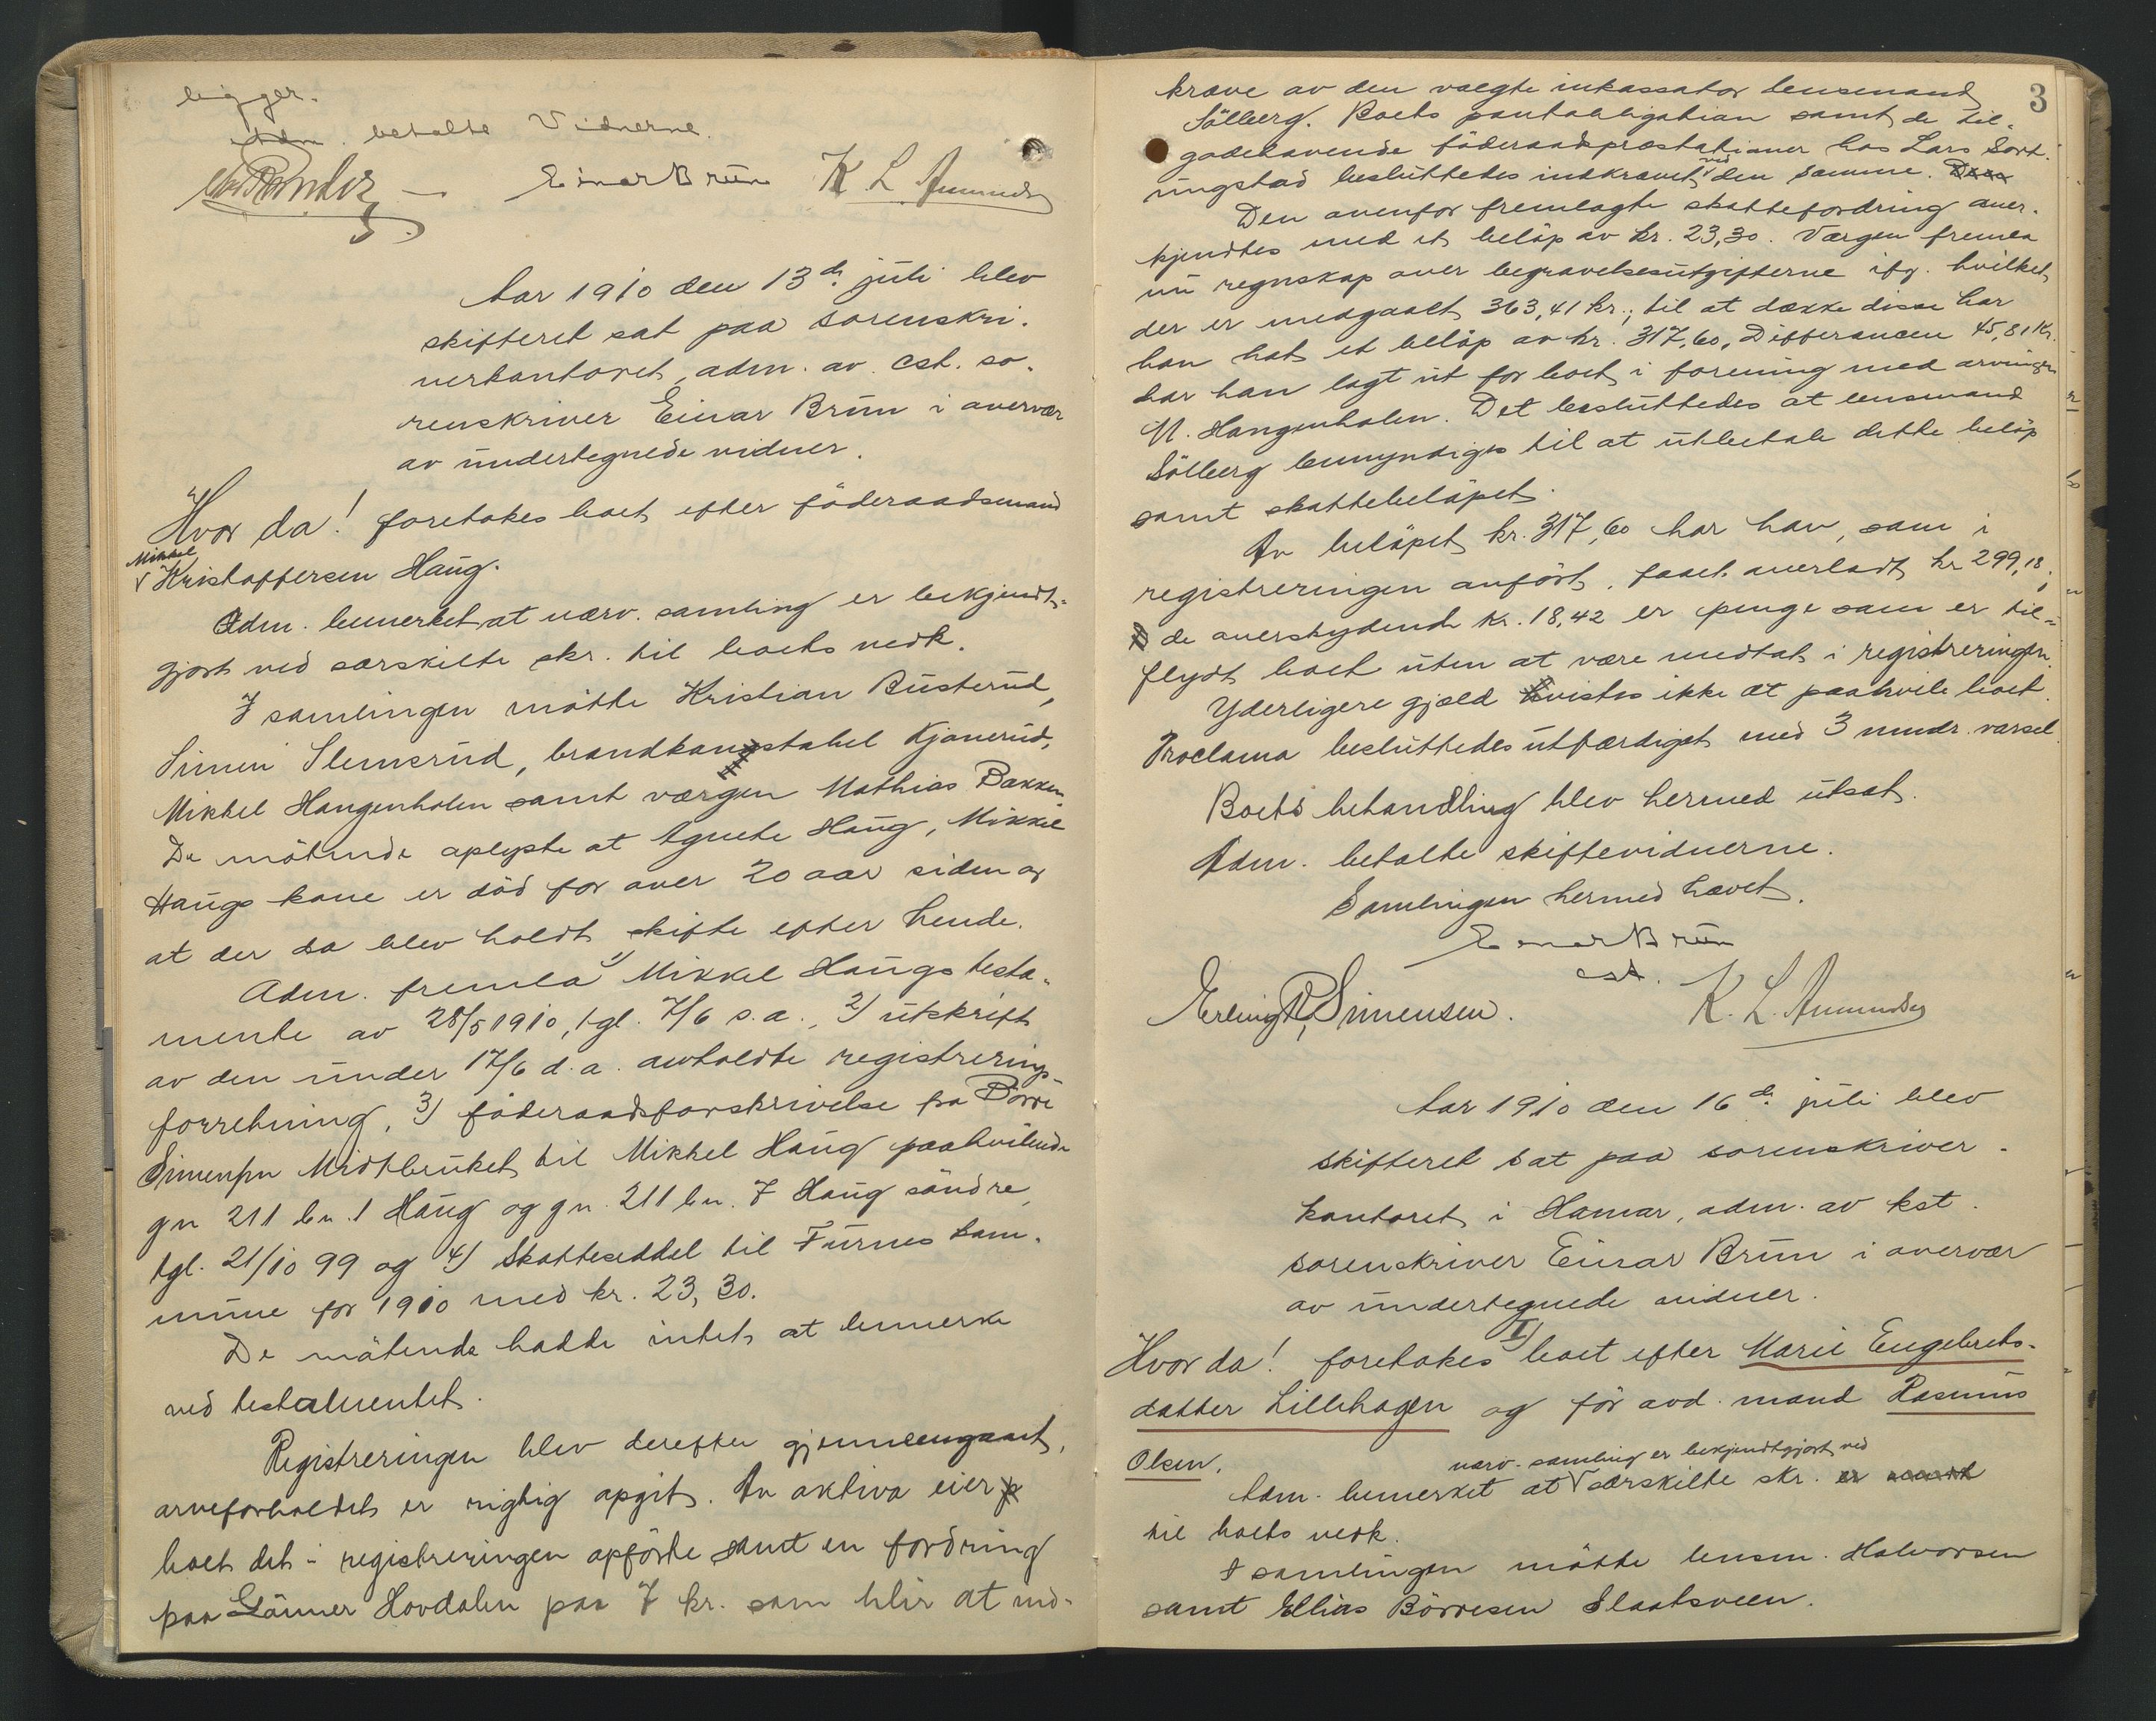 ligger.
Adm. betalte Vidnerne.
Einar Brün K L Amundsen
Aar 1910 den 13de juli blev
skifteret sat paa sorenskri-
verkontoret, adm. av cst. so-
renskriver Einar Brün i overvær
av undertegnede vidner.
Hvor da! foretokes boet efter föderaadsmand
Mikkel
Kristoffersen Haug.
Adm. bemerket at nærv. samling er bekjendt-
gjort ved særskilte skr. til boets vedk.
I samlingen mötte Kristian Busterud,
Simen Slemsrud, brandkonstabel Kjonerud,
Mikkel Haugenholen samt værgen Mathias Bakken
De mötende oplyste at Agnete Haug, Mikkel
Haugs kone er död for over 20 aar siden og
at der da blev holdt skifte efter hende.
Adm. fremla 1) Mikkel Haugs testa-
mente av 28/5 1910, tgl. 7/6 s.a., 2) utskrift
av den under 17/6 d.a. avholdte registrerings-
forretning, 3) föderaadsforskrivelse fra Börre
Simensen Midtbruket til Mikkel Haug paahvilende
gn 211 bn. 1 Haug og gn. 211 bn. 7 Haug söndre,
tgl. 21/10 99 og 4) Skatteseddel til Furnes kom-
mune for 1910 med kr. 23,30.
De mötende hadde intet at bemerke
ved testamentet.
Registreringen blev derefter gjennemgaat,
arveforholdet er rigtig opgit. Av aktiva eier
boet det i registreringen opförte samt en fordring
paa Gunner Hovdolen paa 7 kr. som blir at ind-
3
kræve av den valgte inkassator lensmand
Sölberg. Boets pantobligation samt de til-
godehavende föderaadspræstationer hos Lars Sort-
ingstad besluttedes indkrævet ved den samme.
Den ovenfor fremlagte skattefordring aner-
kjendtes med et belöp av kr. 23,30. Værgen fremla
nu regnskap over begravelsesutgifterne ifg. hvilket
der er medgaat 363,41 kr.; til at dække disse har
han hat et belöp av kr. 317,60, Differancen 45,81 kr.
har han lagt ut for boet i forening med arvingen
M. Haugenholen. Det besluttedes at lensmand
Sölberg bemyndiges til at utbetale dette belöp
samt skattebelöpet.
Av belöpet kr. 317,60 har han, som i
registreringen anfört, faaet overladt kr 299,18;
de overskydende kr. 18,42 er penge som er til-
flydt boet uten at være medtat i registreringen.
Yderligere gjæld vistes ikke at paahvile boet.
Proclama besluttedes utfærdiget med 3 mndr. varsel.
Boets behandling blev hermed utsat.
Adm. betalte skiftevidnerne.
Samlingen hermed hævet.
Einar Brün
cst.
Erling R, Simensen. K. L. Amundsen
Aar 1910 den 16de juli blev
skifteret sat paa sorenskriver-
kontoret i Hamar, adm. av kst.
sorenskriver Einar Brün i overvær
av undertegnede vidner.
Hvor da! foretokes I) boet efter Marie Engebrets-
datter Lillehagen og för avd. mand Rasmus
Olsen.
nærv. samling er bekjendtgjort ved
Adm. bemerket at særskilte skr. er
til boets vedk.
I samlingen mötte lensm. Halvorsen
samt Ellias Börresen Slaatsveen.